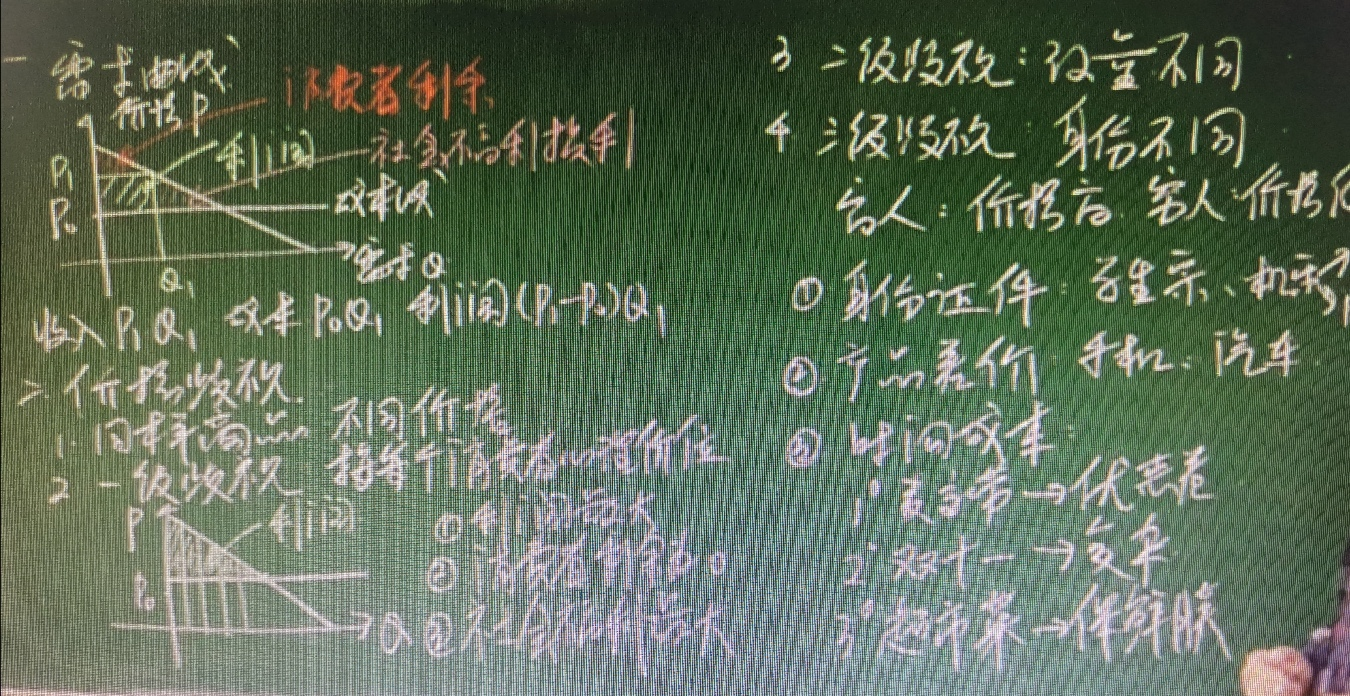 一 需求曲线
价格P
消费者剩余
利润
社会福利损失
P₁
P₀
成本线
需求Q
Q₁
收入P₁Q₁ 成本P₀Q₁ 利润(P₁-P₀)Q₁
二.价格歧视.
1. 同样商品 不同价格
2 一级歧视 按每个消费者心理价位
P
利润
P₀
Q
① 利润最大
② 消费者剩余为0
③ 社会福利最大
3 二级歧视:数量不同
4 三级歧视:身份不同
富人:价格高 穷人:价格
① 身份证件:学生票、机票
② 产品差价:手机、汽车
③ 时间成本:
1° 麦当劳→优惠卷
2° 双十一→复杂
3° 超市菜→保鲜膜